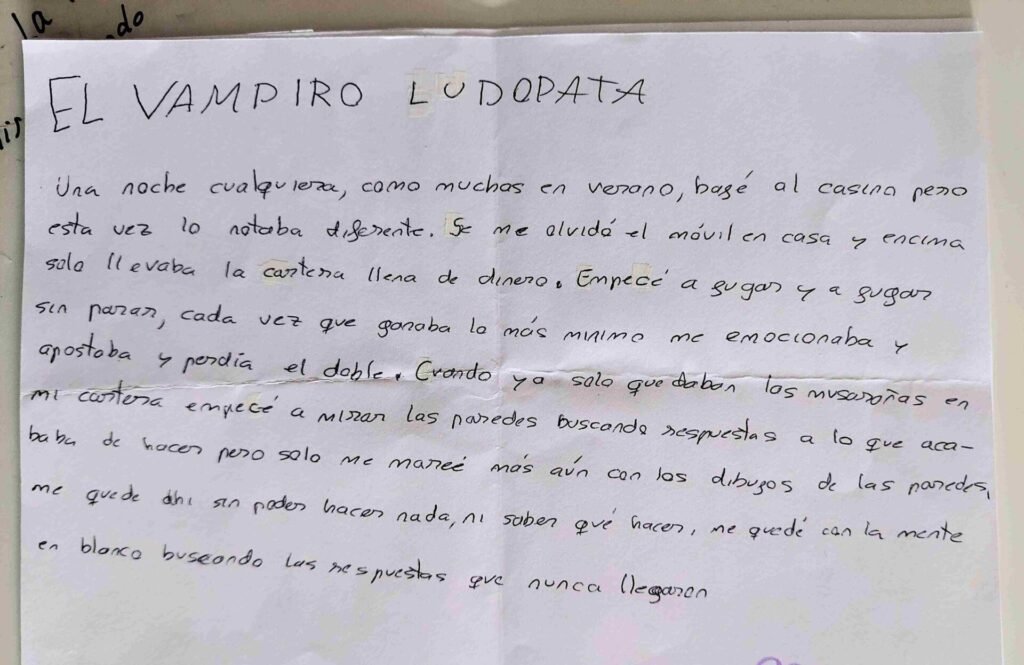 la
do
is
EL VAMPIRO LUDOPATA
Una noche cualquiera, como muchas en verano, bagé al casino pero
esta vez lo notaba diferente. Se me olvidó el móvil en casa y encima
solo llevaba la cartera llena de dinero. Empecé a gugar y a gugar
sin parar, cada vez que ganaba lo más minimo me emocionaba y
apostaba y perdía el doble. Cuando ya solo quedaban las musarañas en
mi cartera empecé a mirar las paredes buscando respuestas a lo que aca-
baba de hacer pero solo me mareé más aún con los dibugos de las paredes,
me quede ahi sin poder hacer nada, ni saber qué hacer, me quedé con la mente
en blanco buscando las respuestas que nunca llegaron